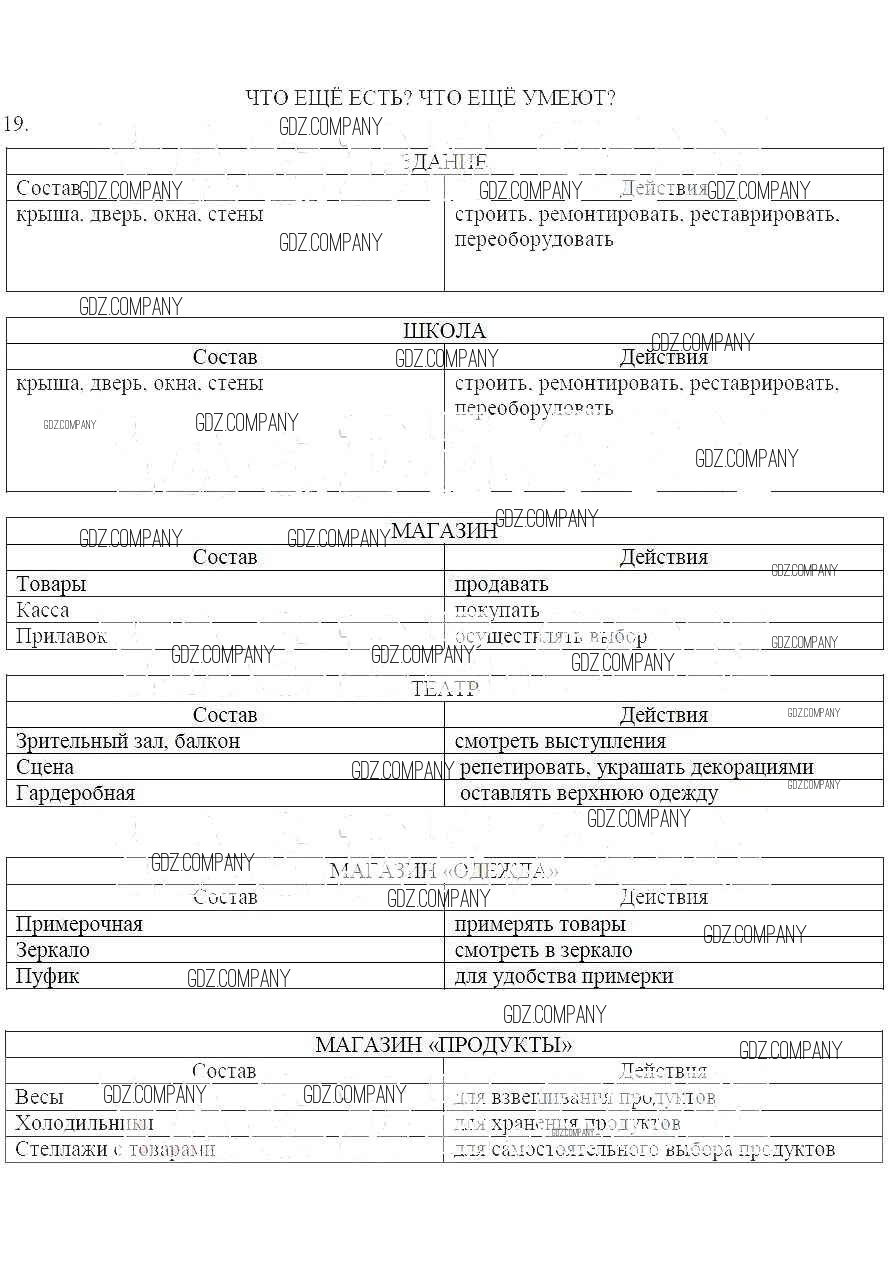 ЧТО ЕЩЁ ЕСТЬ? ЧТО ЕЩЁ УМЕЮТ?
19.
GDZ.COMPANY
ЗДАНИЕ
Состав GDZ.COMPANY GDZ.COMPANY Действия GDZ.COMPANY
крыша, дверь, окна, стены строить, ремонтировать, реставрировать,
GDZ.COMPANY переоборудовать
GDZ.COMPANY
ШКОЛА
GDZ.COMPANY
Состав GDZ.COMPANY Действия
крыша, дверь, окна, стены строить, ремонтировать, реставрировать,
переоборудовать
GDZ.COMPANY GDZ.COMPANY
GDZ.COMPANY
GDZ.COMPANY
GDZ.COMPANY GDZ.COMPANY МАГАЗИН
Состав Действия
GDZ.COMPANY
Товары продавать
Касса покупать
Прилавок осуществлять выбор GDZ.COMPANY
GDZ.COMPANY GDZ.COMPANY GDZ.COMPANY
ТЕАТР
Состав Действия GDZ.COMPANY
Зрительный зал, балкон смотреть выступления
Сцена GDZ.COMPANY репетировать, украшать декорациями
GDZ.COMPANY
Гардеробная оставлять верхнюю одежду
GDZ.COMPANY
GDZ.COMPANY
МАГАЗИН «ОДЕЖДА»
Состав GDZ.COMPANY Действия
Примерочная примерять товары
GDZ.COMPANY
Зеркало смотреть в зеркало
Пуфик GDZ.COMPANY для удобства примерки
GDZ.COMPANY
МАГАЗИН «ПРОДУКТЫ» GDZ.COMPANY
Состав Действия
Весы GDZ.COMPANY GDZ.COMPANY для взвешивания продуктов
Холодильники для хранения продуктов
GDZ.COMPANY
Стеллажи с товарами для самостоятельного выбора продуктов